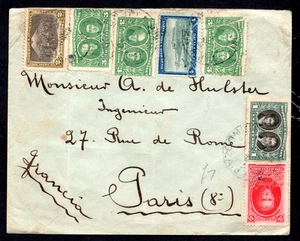 Monsieur A. de Hulster
Ingenieur
27. Rue de Rome
Francia
Paris (8e)